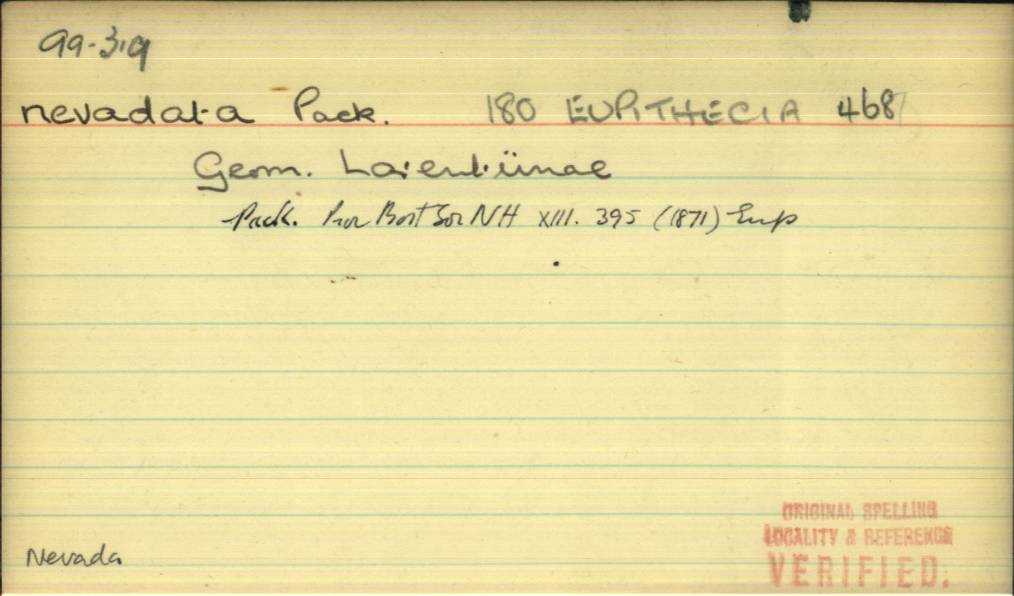 99-3.9
nevadata Pack. 180 EUPITHECIA 468
Geom. Larentiinae
Pack. Proc Bost Soc NH XIII. 395 (1871) Eup
Nevada
ORIGINAL SPELLING
LOCALITY & REFERENCE
VERIFIED.